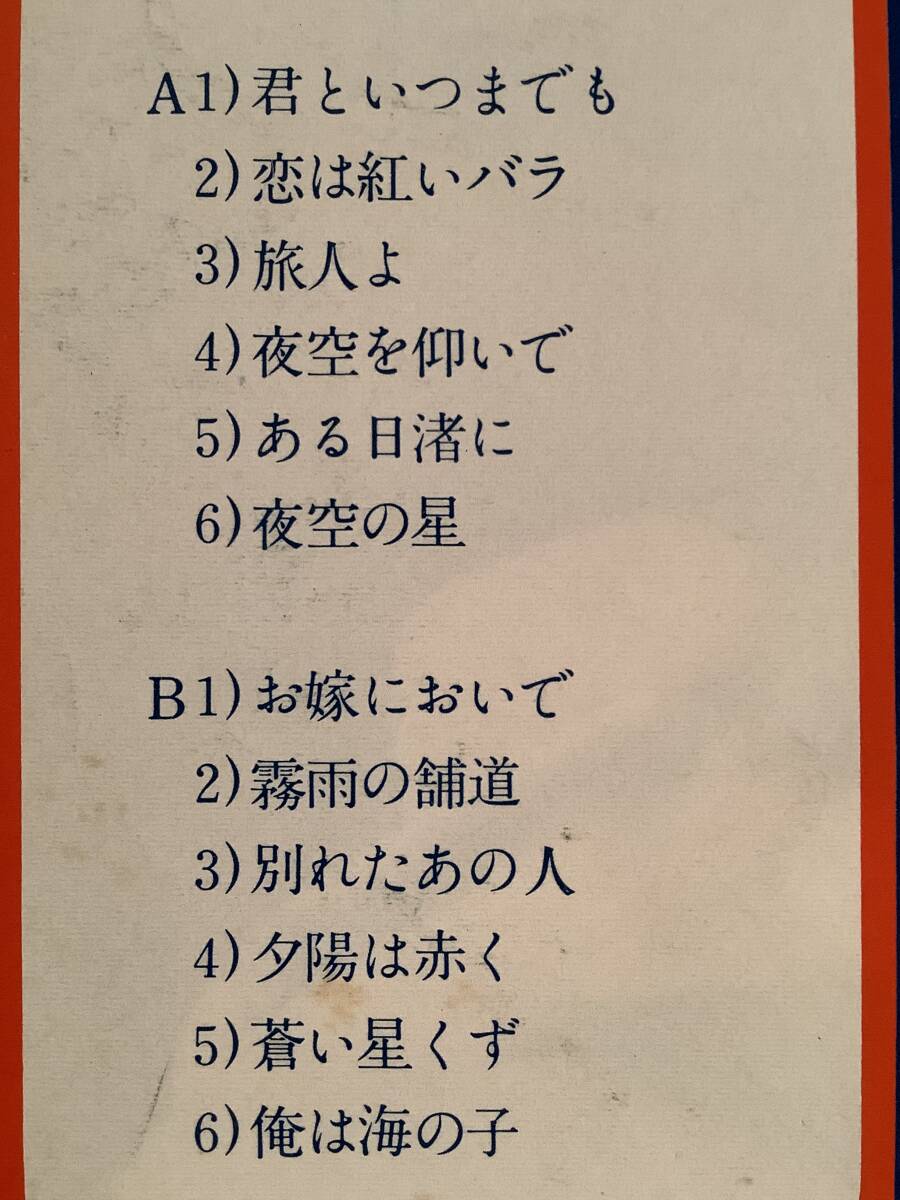 A1)君といつまでも
2)恋は紅いバラ
3)旅人よ
4)夜空を仰いで
5)ある日渚に
6)夜空の星
B1)お嫁においで
2)霧雨の舗道
3)別れたあの人
4)夕陽は赤く
5)蒼い星くず
6)俺は海の子